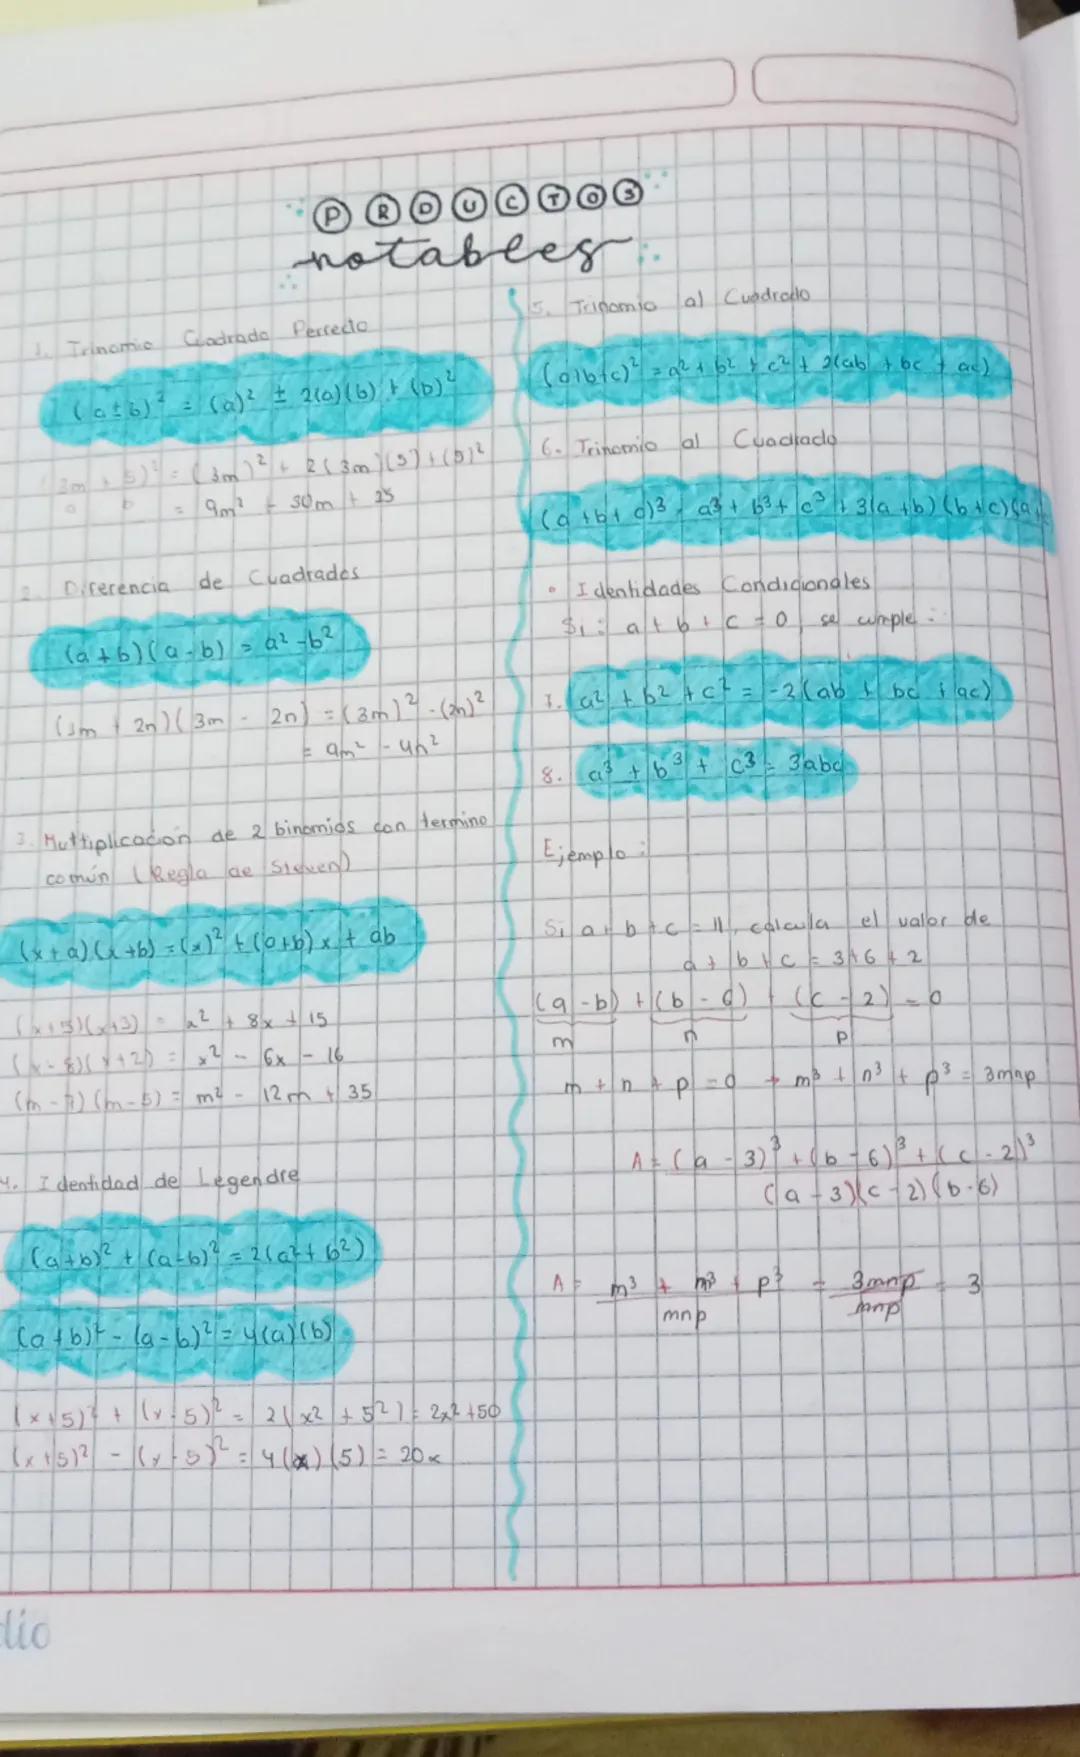 PRODUCTOS
notables
1. Trinomio Cuadrado Perfecto
(a ± b)² = (a)² ± 2(a)(b) + (b)²
(3m + 5)² = (3m)² + 2(3m)(5) + (5)²
a b = 9m² + 30m + 25
2. Diferencia de Cuadrados
(a + b)(a - b) = a² - b²
(3m + 2n)(3m - 2n) = (3m)² - (2n)²
= 9m² - 4n²
3. Multiplicación de 2 binomios con termino
común (Regla de Steven)
(x + a)(x + b) = (x)² + (a+b) x + ab
(x+5)(x+3) = x² + 8x + 15
(x - 8)(x + 2) = x² - 6x - 16
(m - 7)(m - 5) = m² - 12m + 35
4. Identidad de Legendre
(a+b)² + (a-b)² = 2(a² + b²)
(a+b)² - (a-b)² = 4(a)(b)
(x+5)² + (x-5)² = 2(x² + 5²) = 2x² + 50
(x+5)² - (x-5)² = 4(x)(5) = 20x
5. Trinomio al Cuadrado
(a+b+c)² = a² + b² + c² + 2(ab + bc + ac)
6. Trinomio al Cuadrado
(a + b + c)³ = a³ + b³ + c³ + 3(a + b)(b + c)(a +
• Identidades Condicionales
Si: a + b + c = 0 se cumple:
7. a² + b² + c² = -2(ab + bc + ac)
8. a³ + b³ + c³ = 3abc
Ejemplo:
Si a + b + c = 11, calcula el valor de
a + b + c = 3+6+2
(a - b) + (b - 6) + (c - 2) = 0
m n p
m + n + p = 0 → m³ + n³ + p³ = 3mnp
A = (a - 3)³ + (b - 6)³ + (c - 2)³
(a - 3)(c - 2)(b - 6)
A = m³ + n³ + p³ = 3mnp = 3
mnp mnp
dio